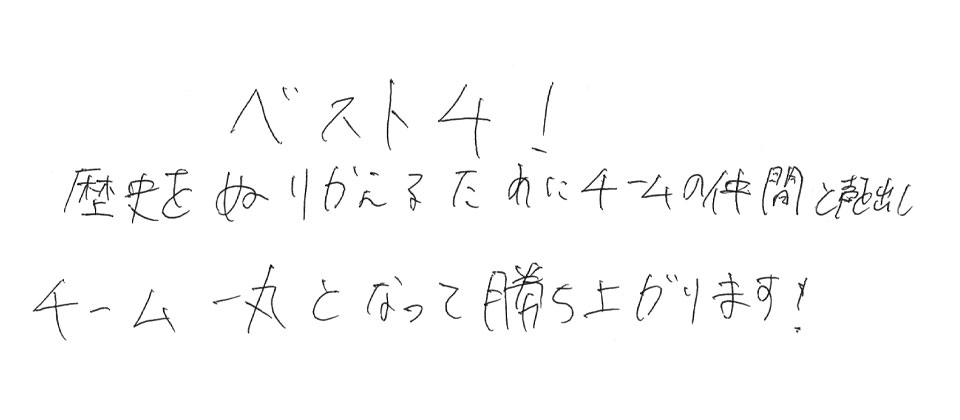 ベスト4!
歴史をぬりかえるためにチームの仲間と声出し
チーム一丸となって勝ち上がります!